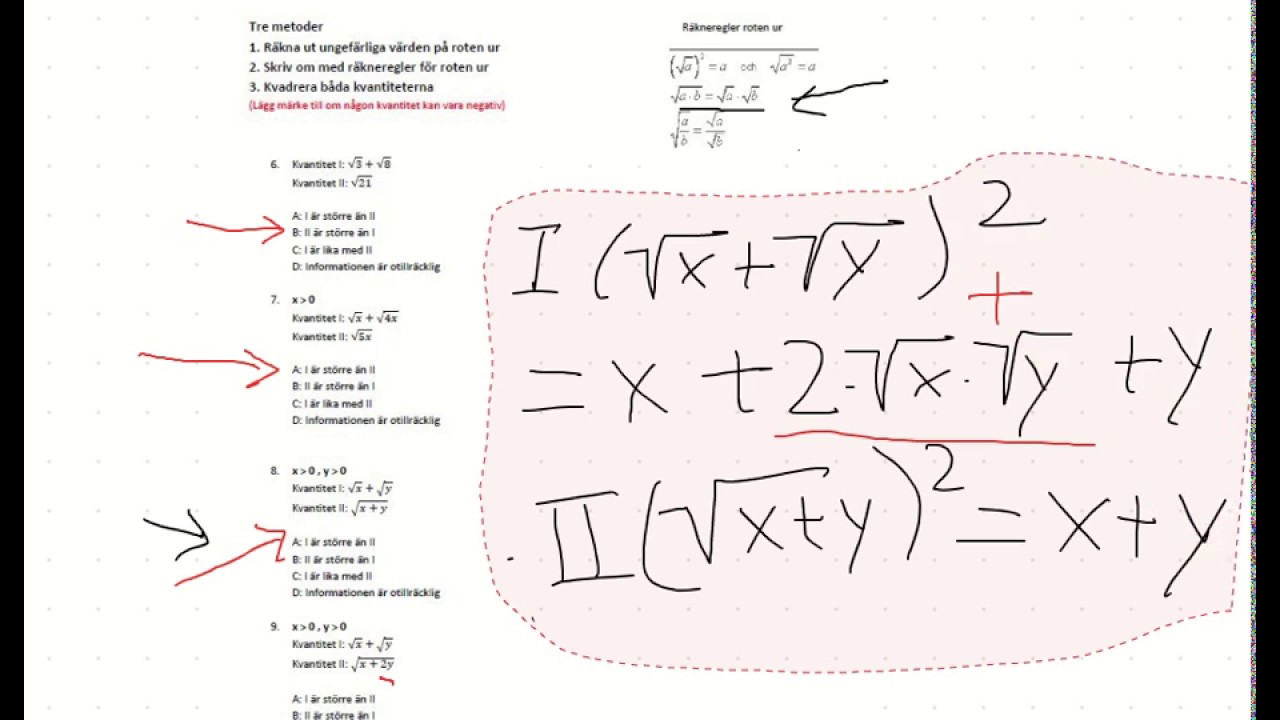 Tre metoder
1. Räkna ut ungefärliga värden på roten ur
2. Skriv om med räkneregler för roten ur
3. Kvadrera båda kvantiteterna
(Lägg märke till om någon kvantitet kan vara negativ)
Räkneregler roten ur
(√a)² = a och √a² = a
√a·b = √a · √b
√(a/b) = √a/√b
6. Kvantitet I: √3 + √8
Kvantitet II: √21
A: I är större än II
B: II är större än I
C: I är lika med II
D: Informationen är otillräcklig
7. x > 0
Kvantitet I: √x + √4x
Kvantitet II: √5x
A: I är större än II
B: II är större än I
C: I är lika med II
D: Informationen är otillräcklig
8. x > 0 , y > 0
Kvantitet I: √x + √y
Kvantitet II: √(x + y)
A: I är större än II
B: II är större än I
C: I är lika med II
D: Informationen är otillräcklig
9. x > 0 , y > 0
Kvantitet I: √x + √y
Kvantitet II: √(x + 2y)
A: I är större än II
B: II är större än I
I (√x + √y)²
+
= x + 2·√x·√y + y
II (√(x+y))² = x + y